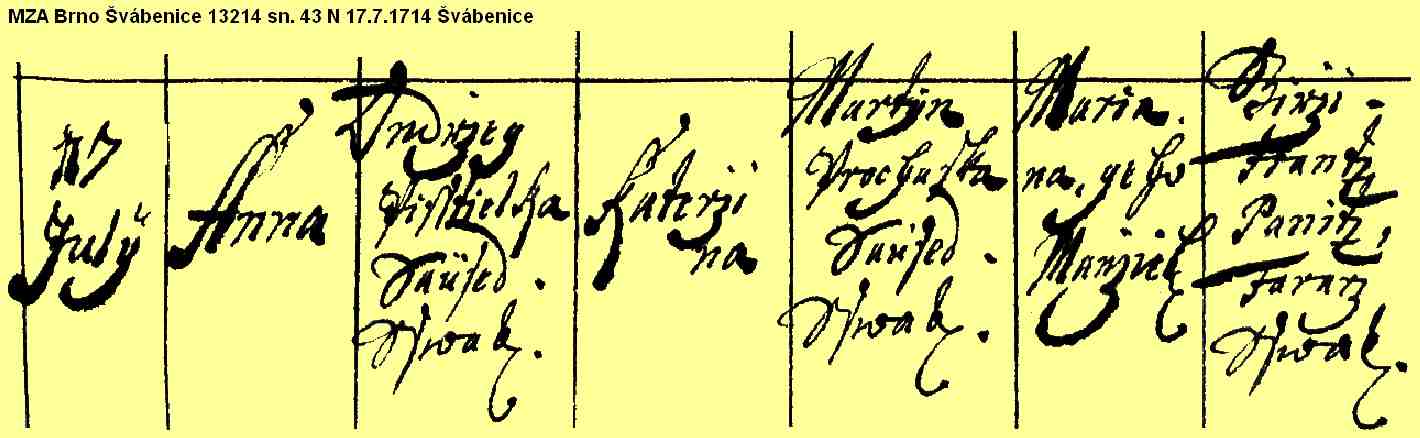 MZA Brno Švábenice 13214 sn. 43 N 17.7.1714 Švábenice
17
July
Anna
Ondrzey
Pisstielka
Saused.
Sswab.
Katerzi
na
Martyn
Prochaska
Saused.
Sswab.
Maria
na, geho
Manziel
Girzii
Frantz
Panitz,
Fararz
Sswab.